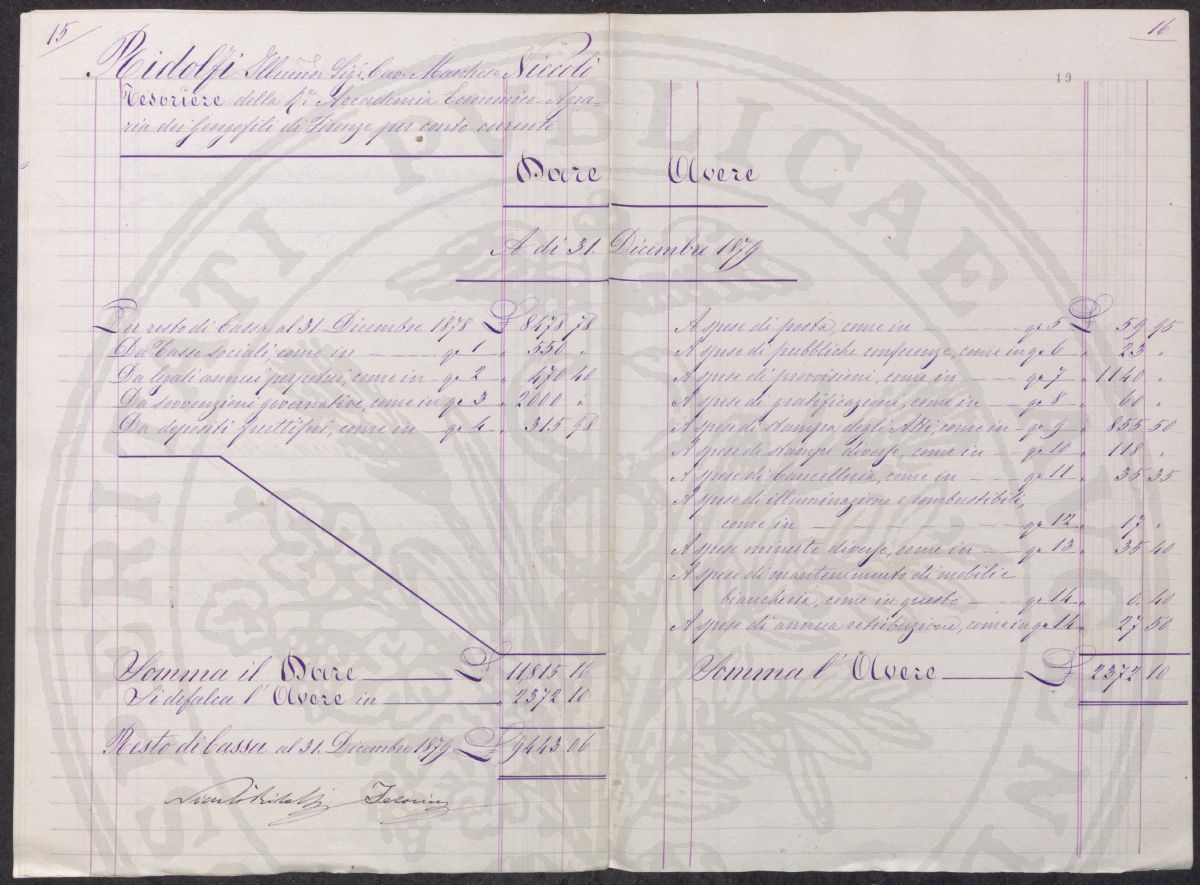 15
Ridolfi Illumo Sigr. Cav. Marchese Niccolò
Tesoriere della Rª Accademia Economico-Agra-
ria dei Georgofili di Firenze per conto corrente
Dare
A di 31. Dicembre 1879
Per resto di Cassa al 31. Dicembre 1878 £ 8478 78
Da Tasse sociali, come in — 1 „ 550 „
Da legati annui perpetui, come in 2 „ 470 40
Da sovvenzioni governative, come in 3 „ 2000 „
Da depositi fruttiferi, come in — 4 „ 315 98
Somma il Dare — £ 11815 16
Si defalca l' Avere in — „ 2372 10
Resto di Cassa al 31. Dicembre 1879 £ 9443 06
Niccolò Ridolfi Tesoriere
16
19
Avere
A spese di posta, come in — 5 £ 59 95
A spese di pubbliche conferenze, come in 6 „ 23 „
A spese di provvisioni, come in — 7 „ 1140 „
A spese di gratificazioni, come in — 8 „ 60 „
A spese di stampa degli Atti, come in — 9 „ 855 50
A spese di stampe diverse, come in — 10 „ 118 „
A spese di Cancelleria, come in — 11 „ 35 35
A spese di illuminazione e combustibili,
come in — 12 „ 17 „
A spese minute diverse, come in — 13 „ 35 40
A spese di mantenimento di mobili e
biancheria, come in questo — 14 „ 0. 40
A spese di annua retribuzione, come in 14 „ 27 50
Somma l' Avere — £ 2372 10
PERITI PUBLICAE